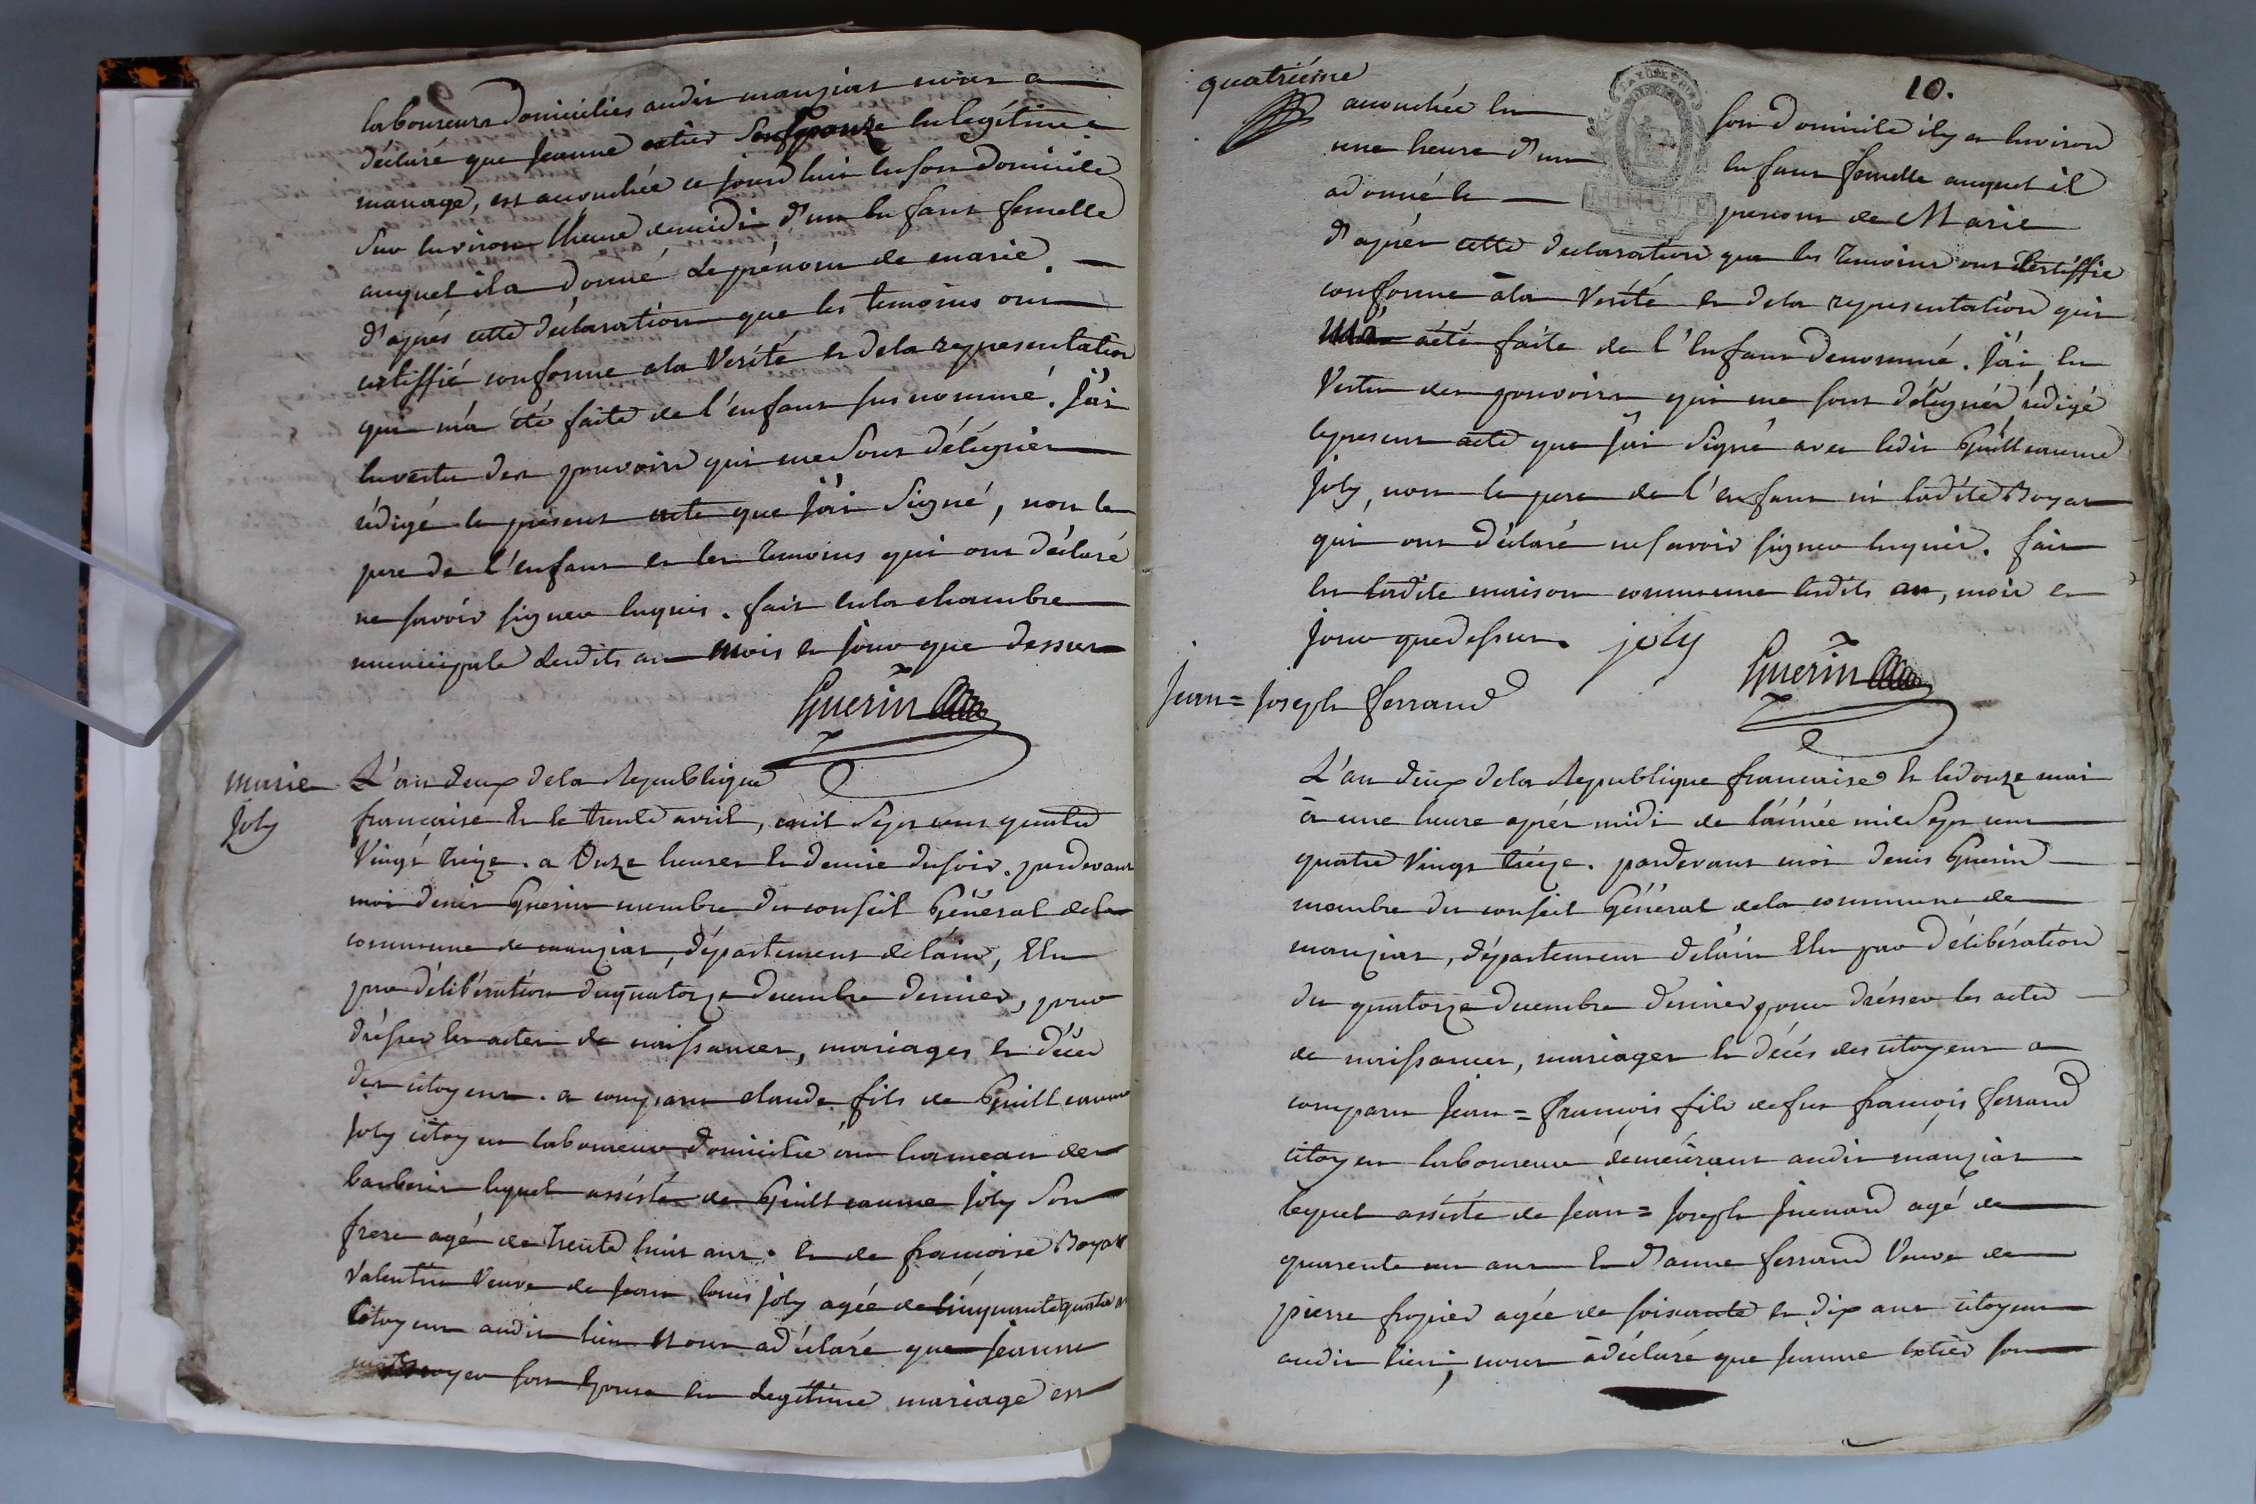 laboureurs domiciliés audit manziat nous a
déclaré que Jeanne extier son épouze en légitime
mariage, est accouchée ce jourd'hui en son domicile
Sur environ l'heure de midi d'un enfant femelle
auquel il a donné le prénom de marie.
d'après cette déclaration que les temoins ont
certiffié conforme a la Verité et de la representation
qui m'a été faite de l'enfant susnommé. J'ai
en vertu des pouvoirs qui me sont délégués
rédigé le présent acte que J'ai Signé, non le
pere de l'enfant et les temoins qui ont déclaré
ne savoir signer enquis. fait en la chambre
municipale desdits an mois et jour que dessus
Guerin
marie
Joly
L'an deux de la Republique
francaise et le trente avril, mil Sept cent quatre
Vingt treize. a Onze heures et demie du soir. pardevant
moi denis Guerin membre du conseil Général de la
commune de manziat, département de l'ain, Elu
par délibération du quatorze decembre dernier, pour
dresser les actes de naissances, mariages et décès
des citoyens. a comparu claude fils de Guillaume
Joly citoyen laboureur domicilié au hameau de
lequel assisté de Guillaume Joly Son
frere agé de trente huit ans. et de francoise Boyat
Valentin Veuve de Jean louis joly agée de cinquante quatre
Citoyens audit lieu Nous a déclaré que Jeanne
son Epouse en Legitime mariage est
quatriéme
10.
accouchée en son domicile il y a environ
une heure d'un enfant femelle auquel il
a donné le prenom de Marie
d'aprés cette declaration que les temoins ont Certiffié
conforme à la Verité et de la representation qui
m'a été faite de l'Enfant denommé. J'ai en
Vertu des pouvoirs qui me sont délégués rédigé
le present acte que J'ai Signé avec ledit Guillaume
Joly, non le pere de l'enfant ni ladite Boyat
qui ont déclaré ne savoir signer enquis. fait
en ladite maison commune lesdits an, mois et
Jour que dessus. joly
Guerin
Jean = Joseph ferrand
L'an deux de la Republique francaise et le douze mai
à une heure aprés midi de l'année mil Sept cent
quatre Vingt treize. pardevant moi denis Guerin
membre du conseil Général de la commune de
manziat, département de l'ain Elu par délibération
du quatorze decembre dernier pour drésser les actes
de naissances, mariages et décés des citoyens a
comparu Jean = francois fils de feu francois ferrand
citoyen laboureur démeurant audit manziat
lequel assisté de Jean = Joseph Juenard agé de
quarente un ans et d'anne ferrand Veuve de
pierre fropier agée de soixante et dix ans citoyens
audit lieu, nous a déclaré que Jeanne extier son